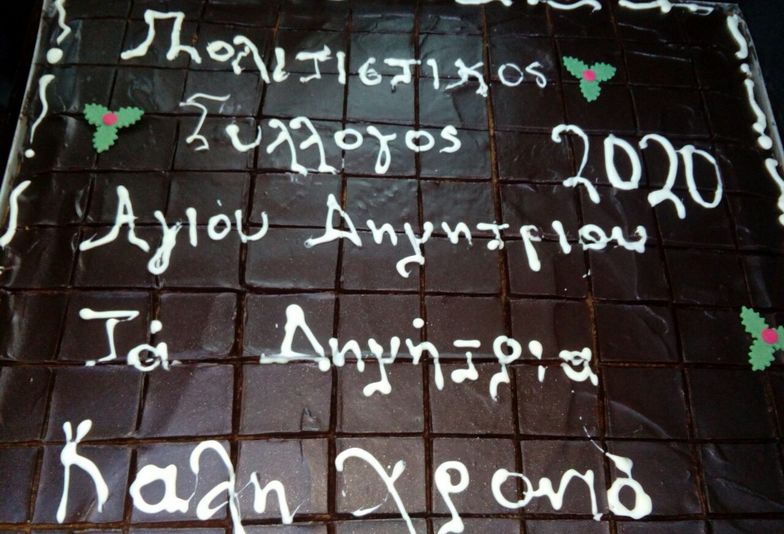 Πολιτιστικος
Συλλογος 2020
Αγιόυ Δημητριου
Τά Δημήτρια
Καλη χρονιά